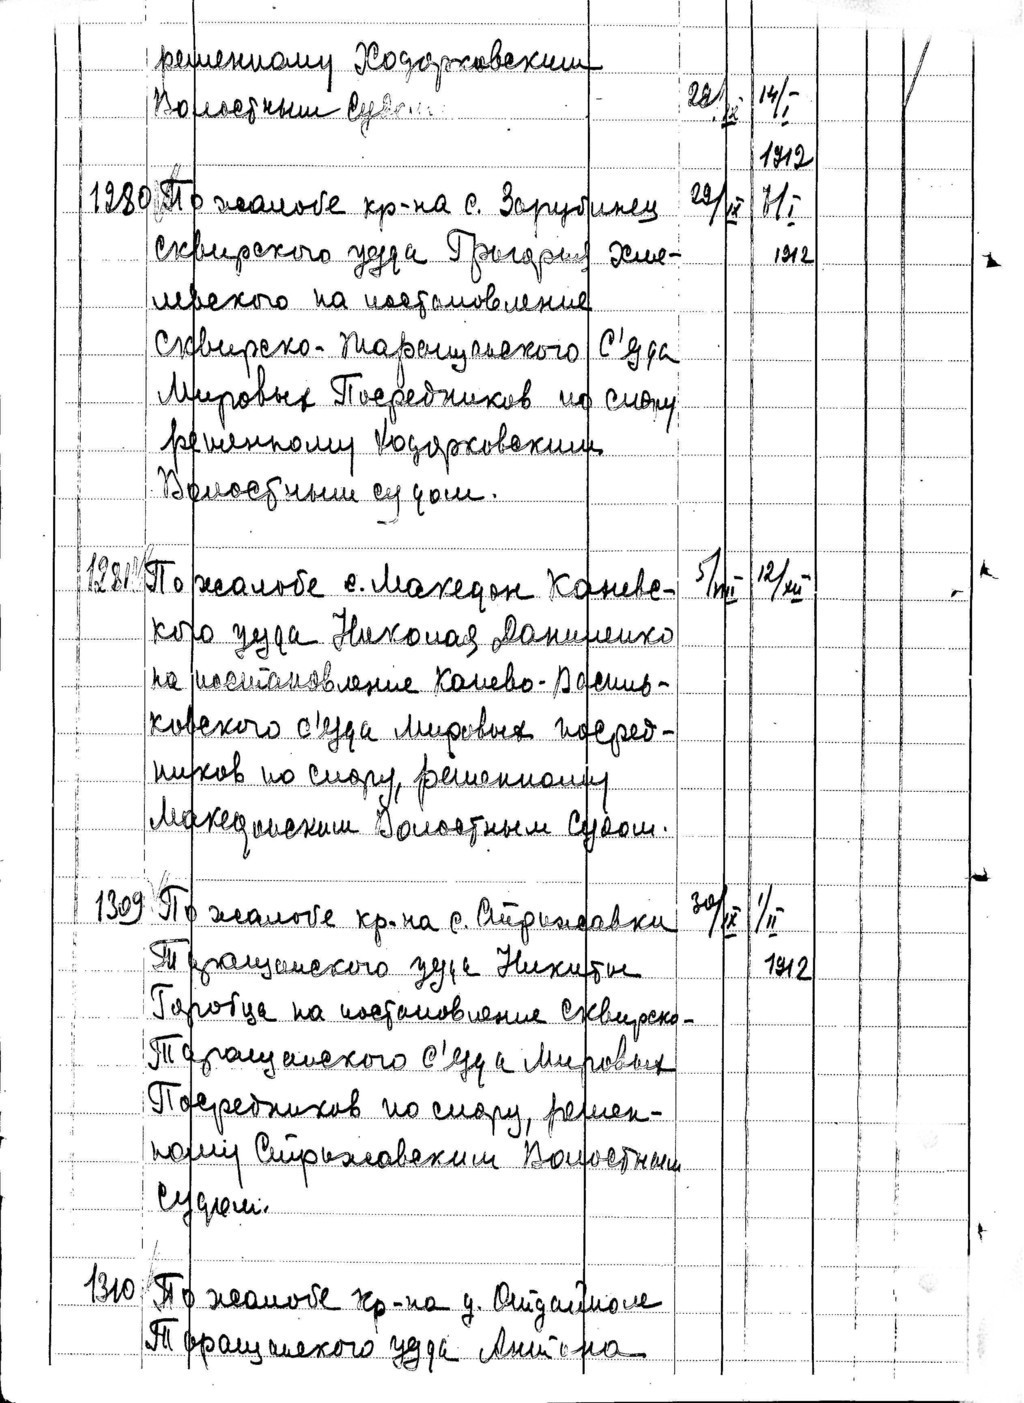 решенному Ходорковским
Волостным Судом 22/IX 14/I
1912
1280 По жалобе кр-на с. Зарубинец 22/IX 7/I
Сквирского уезда Григория Хме- 1912
левского на постановление
Сквирско-Таращанского С'езда
Мировых Посредников по спору
решенному Ходорковским
Волостным судом.
1281 По жалобе с. Македон Каневс- 5/VIII 12/XII
кого уезда Николая Даниленко
на постановление Канево-Василь-
ковского с'езда мировых посред-
ников по спору, решенному
Македонским Волостным Судом.
1309 По жалобе кр-на с. Стрижавки 30/IX 1/II
Таращанского уезда Никиты 1912
Горобца на постановление Сквирско-
Таращанского С'езда Мировых
Посредников по спору, решен-
ному Стрижавским Волостным
Судом.
1310 По жалобе кр-на д.
Таращанского уезда Антона